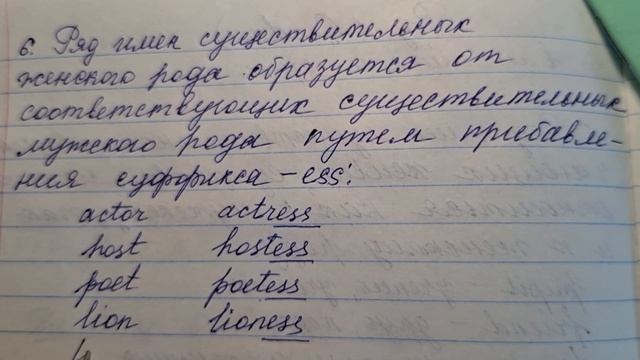 6. Ряд имен существительных
женского рода образуется от
соответствующих существительных
мужского рода путем прибавле-
ния суффикса -ess:
actor actress
host hostess
poet poetess
lion lioness